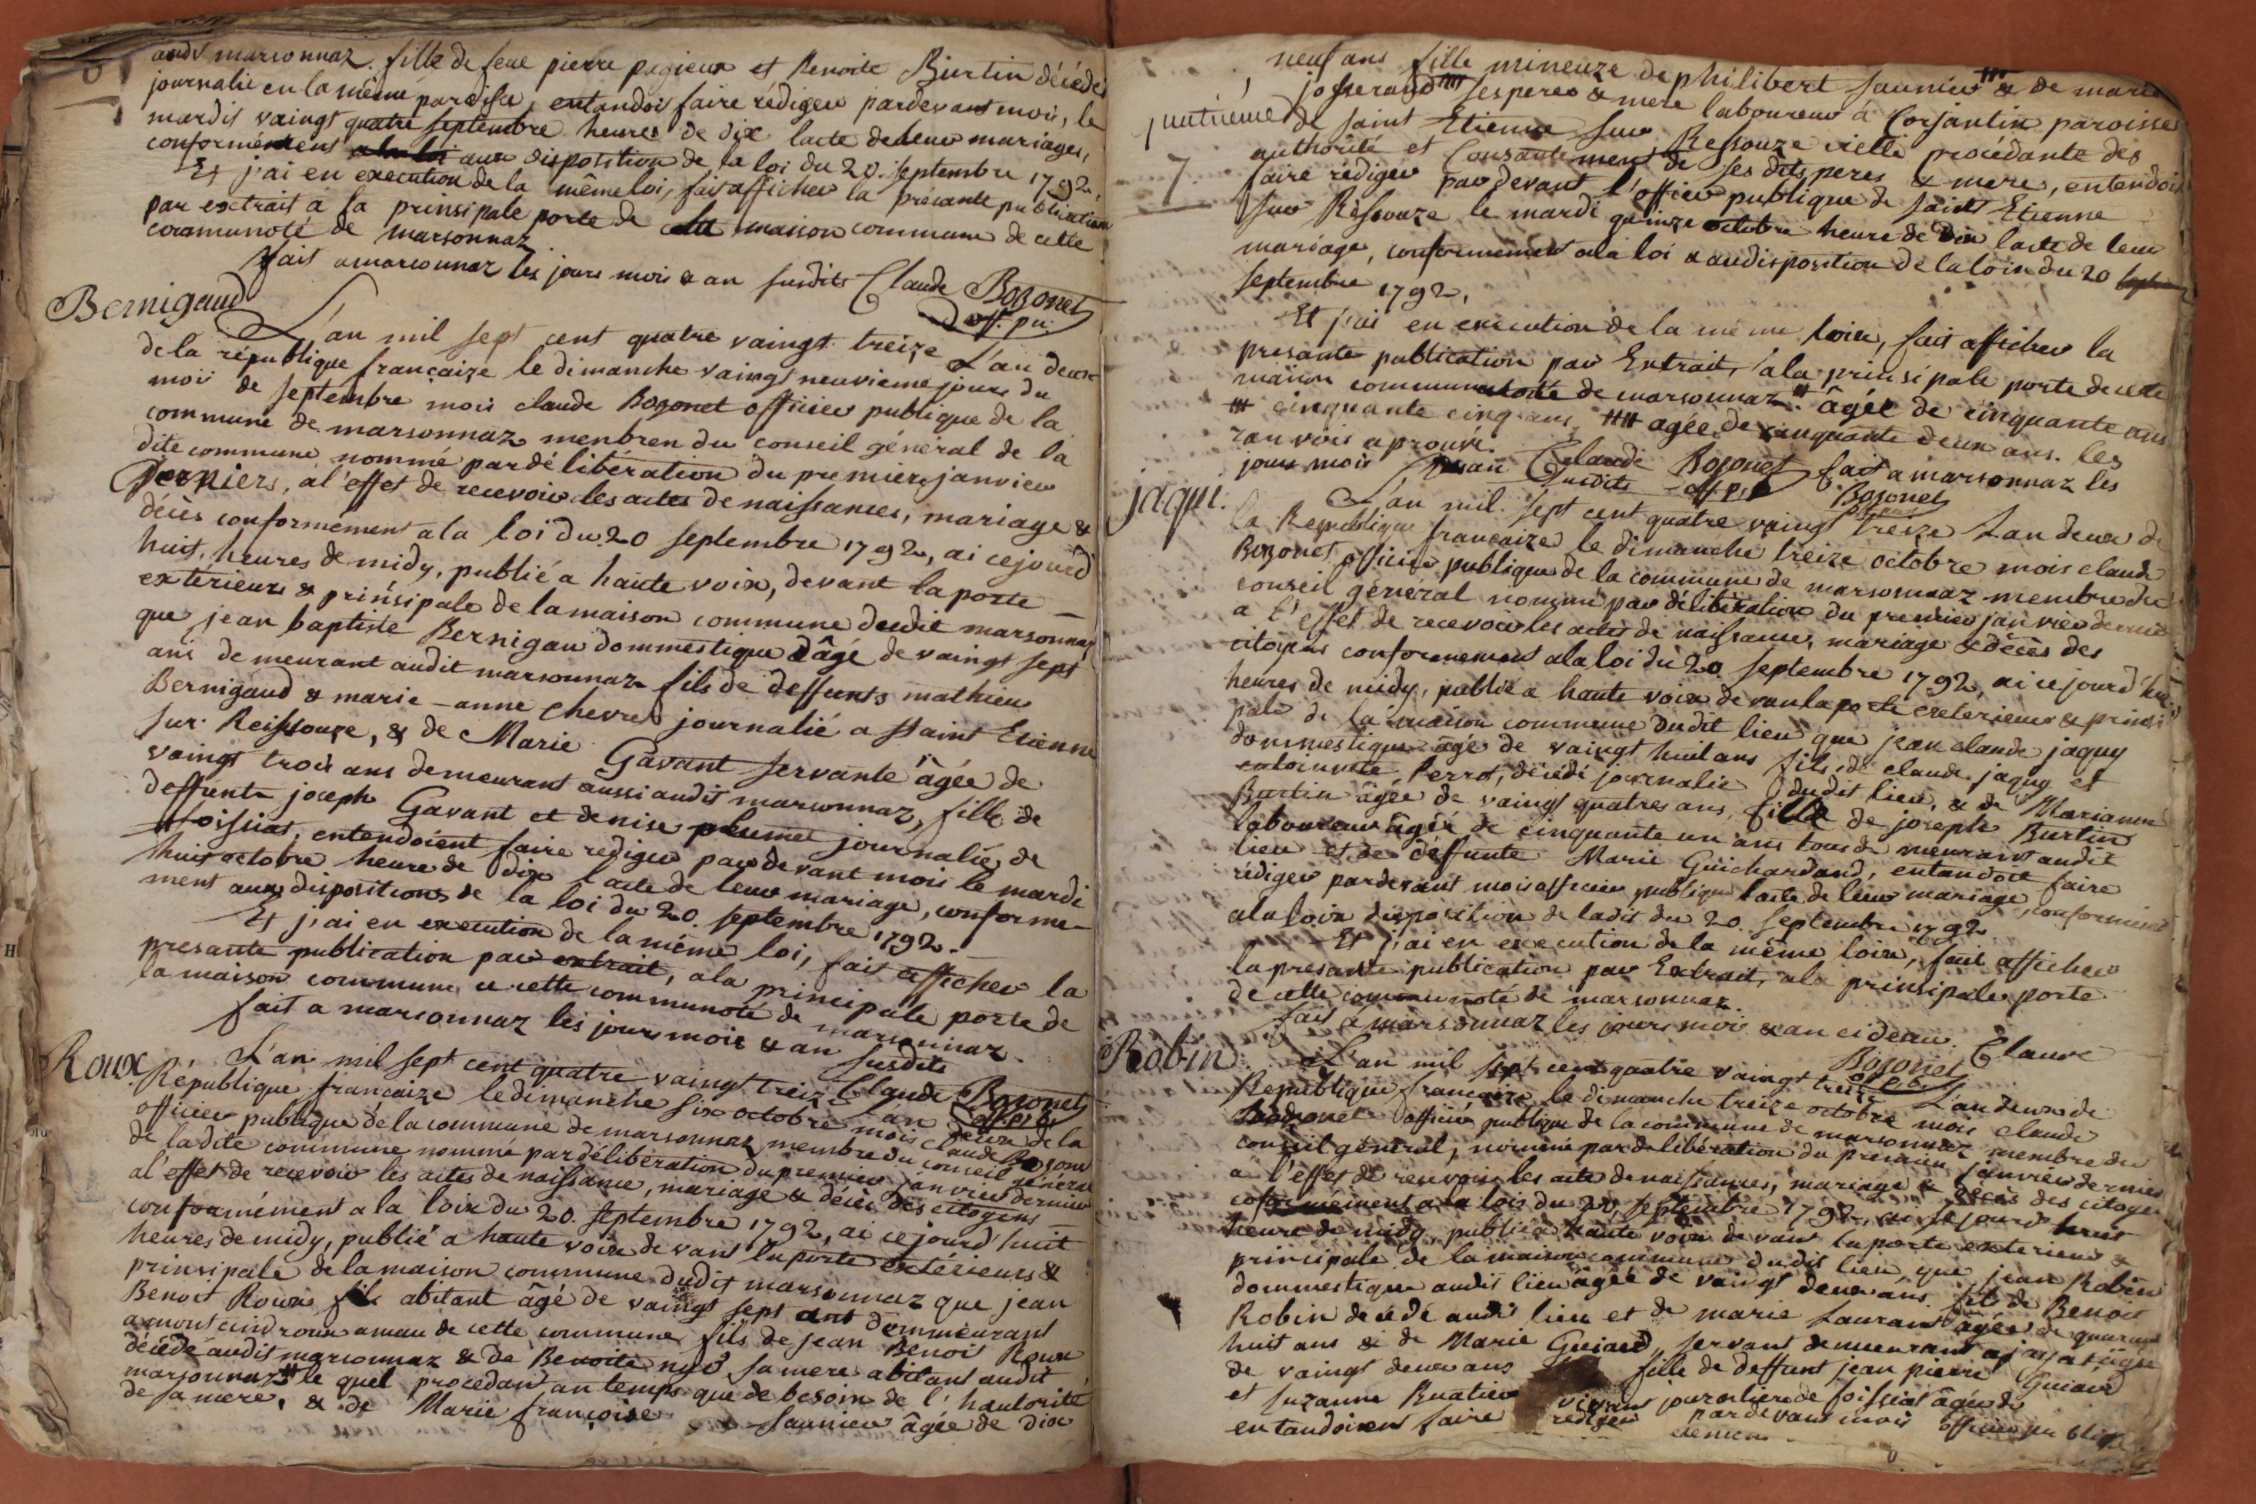 audit marsonnaz. fille de feue pierre pagieux et Benoite Burtin décédés
journalié en la même paroisse, entandois faire rédiger pardevant mois, le
mardis vaingt quatre septembre heures de dix lacte de leur mariages,
conformément a la loi aux disposition de la loi du 20. septembre 1792,
Et j'ai en execution de la même loi, fais afficher la présante publication
par extrait a la prinsipale porte de maison commune de cette
communoté de marsonnaz
fais a marsonnaz les jours mois & an susdits Claude Bozonet
off. pu.
Bernigaud
L'an mil sept cent quatre vaingt treize L'an deux
de la république française le dimanche vaingt neuvieme jours du
mois de septembre mois claude Bozonet officier publique de la
commune de marsonnaz menbren du conseil général de la
dite commune nommé par délibération du premier janvier
derniers, a l'effet de recevoir les actes de naissances, mariage &
décès conformement a la loi du 20 septembre 1792, ai cejourd
huit, heures de midy, publié a haute voix, devant la porte
extérieure & prinsipale de la maison commune dudit marsonnaz
que jean baptiste Bernigau dommestique âgé de vaingt sept
ans demeurant audit marsonnaz fils de deffunts mathieu
Bernigaud & marie-anne chevres journalié a ssaint Etienne
sur Reissouze, & de Marie Gavant servante âgée de
vaingt trois ans demeurant aussi audit marsonnaz, fille de
deffunte joseph Gavant et denise plumet journaliés de
foissiat, entendoient faire rediger par devant mois le mardi
huit octobre heure de dix l'acte de leur mariage, conforme-
ment aux dispositions de la loi du 20. septembre 1792.
Et j'ai en execution de la même loi, fait afficher la
presante publication par extrait, a la principale porte de
la maison commune a cette communoté de marsonnaz.
fait a marsonnaz les jours mois & an susdits
Claude Bozonet
off. pu.
Roux
L'an mil sept cent quatre vaingt treize an deux de la
République françaize le dimanche six octobre mois claude Bozonet
officier publique de la commune de marsonnaz membre du conseil général
de ladite commune nommé par délibération du premier janvier dernier
a l'effet de recevoir les actes de naissance, mariage & décès des citoyens
conformément a la loix du 20. septembre 1792, ai ce jourd'huit
heures de midy, publié a haute voix devant la porte extérieure &
prinsipale de la maison commune dudit marsonnaz que jean
Benoit Roux fils abitant âgé de vaingt sept ans demmeurant
a mont cindroux amau de cette commune fils de jean Benoit Roux
décédé audit marsonnaz & de Benoite nyo sa mere abitant audit
marsonnaz # le quel procedant an temps que de besoin de l'hautorité
de sa mere, & de Marie françoise saunier âgée de dix
neuf ans fille mineuze de philibert saunier # & de marie
josserand ## ses peres & mere laboureur à Corjantin paroisse
huitiéme
de saint Etienne sur Ressouze vielle procédante des
7.
authorité et Consantement de ses dits peres & mere, entendois
faire rédiger par devant l'officier publique de saint Etienne
sur Ressouze le mardi quinze octobre heure de dix lacte de leur
mariage, conformement a la loi & audisposition de la loix du 20
septembre 1792,
Et j'ai en execution de la meme loix, fait afficher la
presante publication par Extrait, a la prinsipale porte de cette
maison communoté de marsonnaz # âgée de cinquante ans
# cinquante cinq ans, ## agée de cinquante deux ans. les
ranvois aprouvé. Claude Bozonet fait a marsonnaz les
jours mois & an susdits off. p. Bozonet
jaqui.
L'an mil sept cent quatre vaingt treize L'an deux de
la Republique françaize le dimanche treize octobre mois claude
Bozonet officier publique de la commune de marsonnaz membre du
conseil général nommé par délibération du premier janvier dernier
a l'effet de recevoir les actes de naissance, mariage & décès des
citoyens conformement a la loi du 20 septembre 1792, ai cejourd'hui
heures de midy, publié a haute voix devant la porte exterieure & prinsi
pale de la maison commune dudit lieu que jean claude jaquy
dommestique âgé de vaingt huit ans fils de claude jaquy et
antoinette Perrot, décédé journalié dudit lieu, & de Marianne
Burtin âgée de vaingt quatres ans, fille de joseph Burtin
laboureur âgée de cinquante un ans tous de meurant audit
lieu et de defunte Marie Guichardand, entandoit faire
rédiger pardevant mois officier publique lacte de leur mariage, conformement
a la loix disposition de ladit du 20. septembre 1792.
Et j'ai en execution de la même loix, fait afficher
la presante publication par Extrait, a la prinsipale porte
de cette communoté de marsonnaz
fais a marsonnaz les jours mois & an cideau. Claude
Bozonet
off. pu.
Robin
L'an mil sept cent quatre vaingt treize L'an deux de
Republique françaize le dimanche treize octobre mois claude
Bozonet officier publique de la commune de marsonnaz membre du
conseil général, nommé par délibération du premier janvier dernier
a l'effet de recevoir les acte de naissances, mariage & décès des citoyens
conformément a la lois du 20. septembre 1792, ai ce jourd'huit
heure de midy publié a haute voix devant la porte exterieure &
prinsipale de la maison commune dudit lieu, que jean Robin
dommestique audit lieu âgée de vaingt deux ans fils de Benoit
Robin décédé audit lieu et de marie Laurant âgée de quarante
huit ans & de Marie Guiard, servant demeurant a
de vaingt deux ans fille de deffunt jean pierre Guiard
et suzanne Buatier vivant journaliere de foissiat âgée de
entandoient faire rediger pardevant mois officier publique